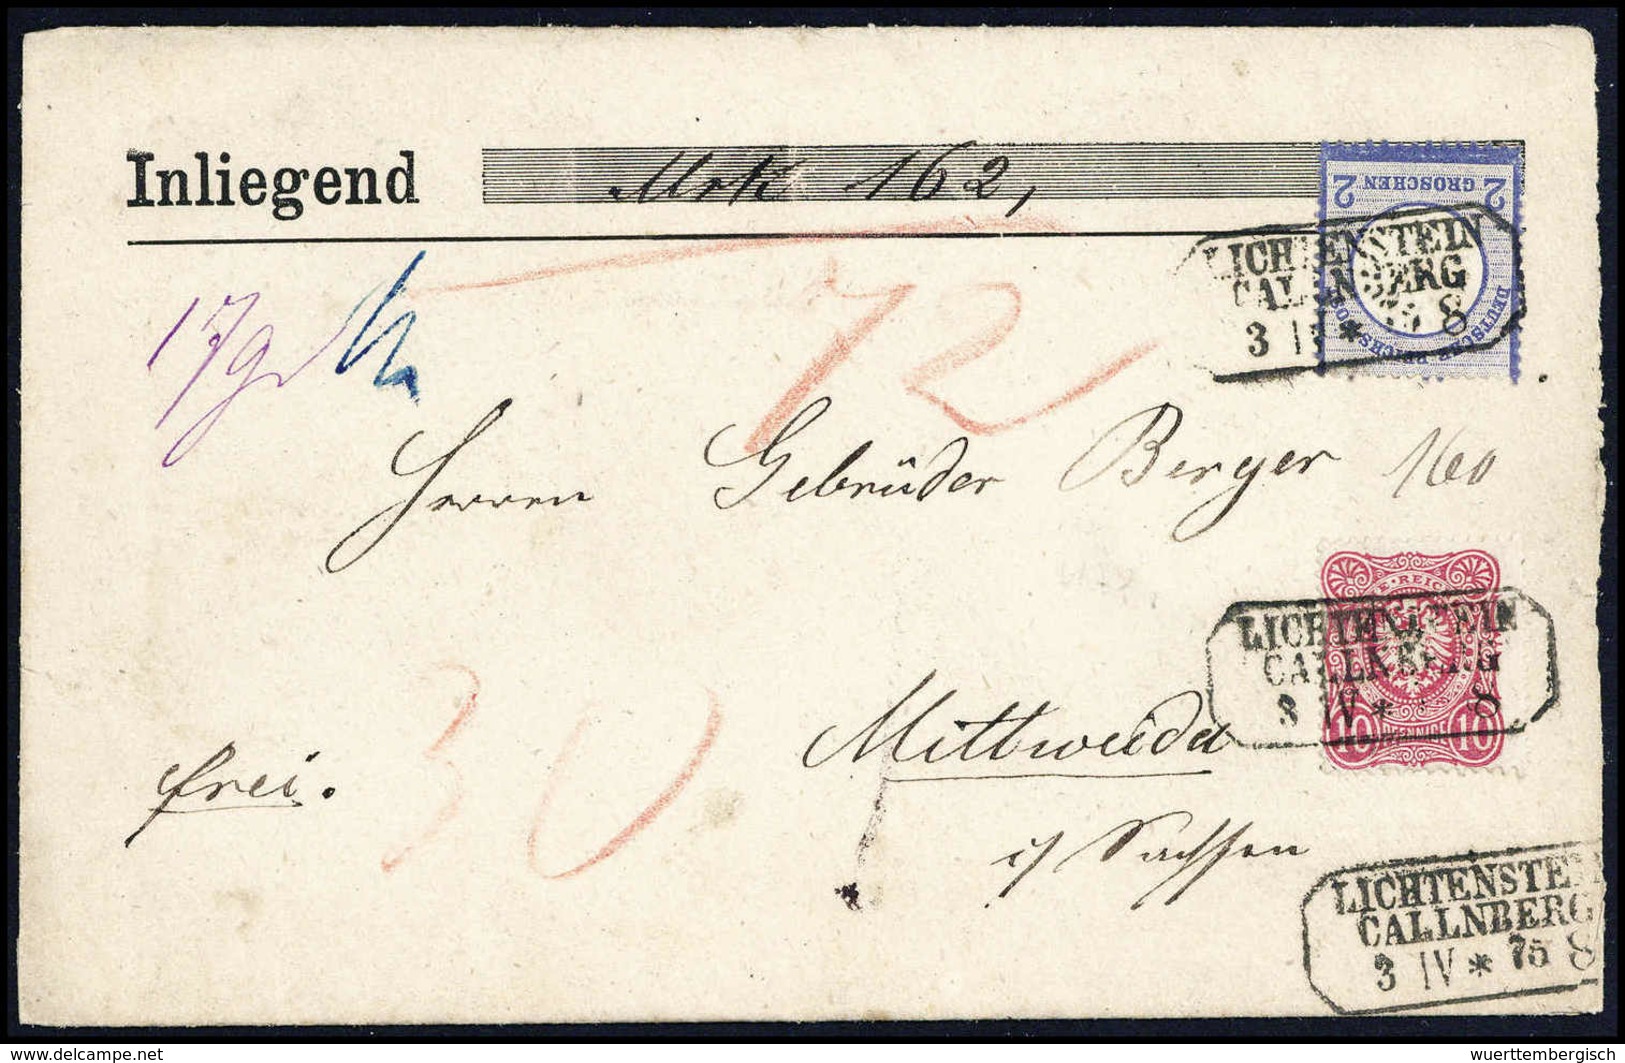 Inliegend Mrk 162,
2 GROSCHEN 2
DEUTSCHE REICHS-POST
LICHTENSTEIN
CALLNBERG
3 IV * 75 8
72
Herren Gebrüder Berger 160
REICH
10 PFENNIGE 10
LICHTENSTEIN
CALLNBERG
3 IV * 8
30
Mittweida
frei.
i/ Sachsen
LICHTENSTEIN
CALLNBERG
3 IV * 75 8
delcampe.net
wuerttembergisch